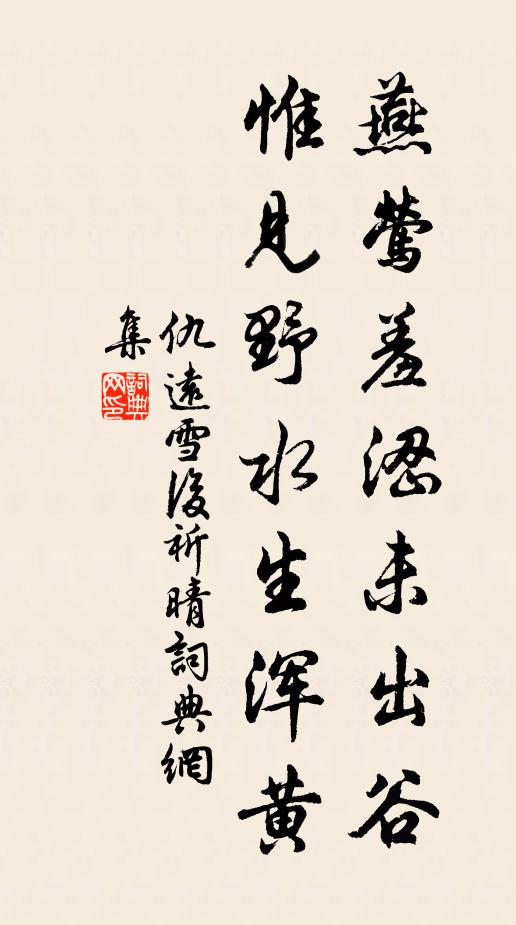 燕鶯羞涩未出谷
惟见野水生浑黄
仇遠雪後祈晴詞典網
集
詞典
网印